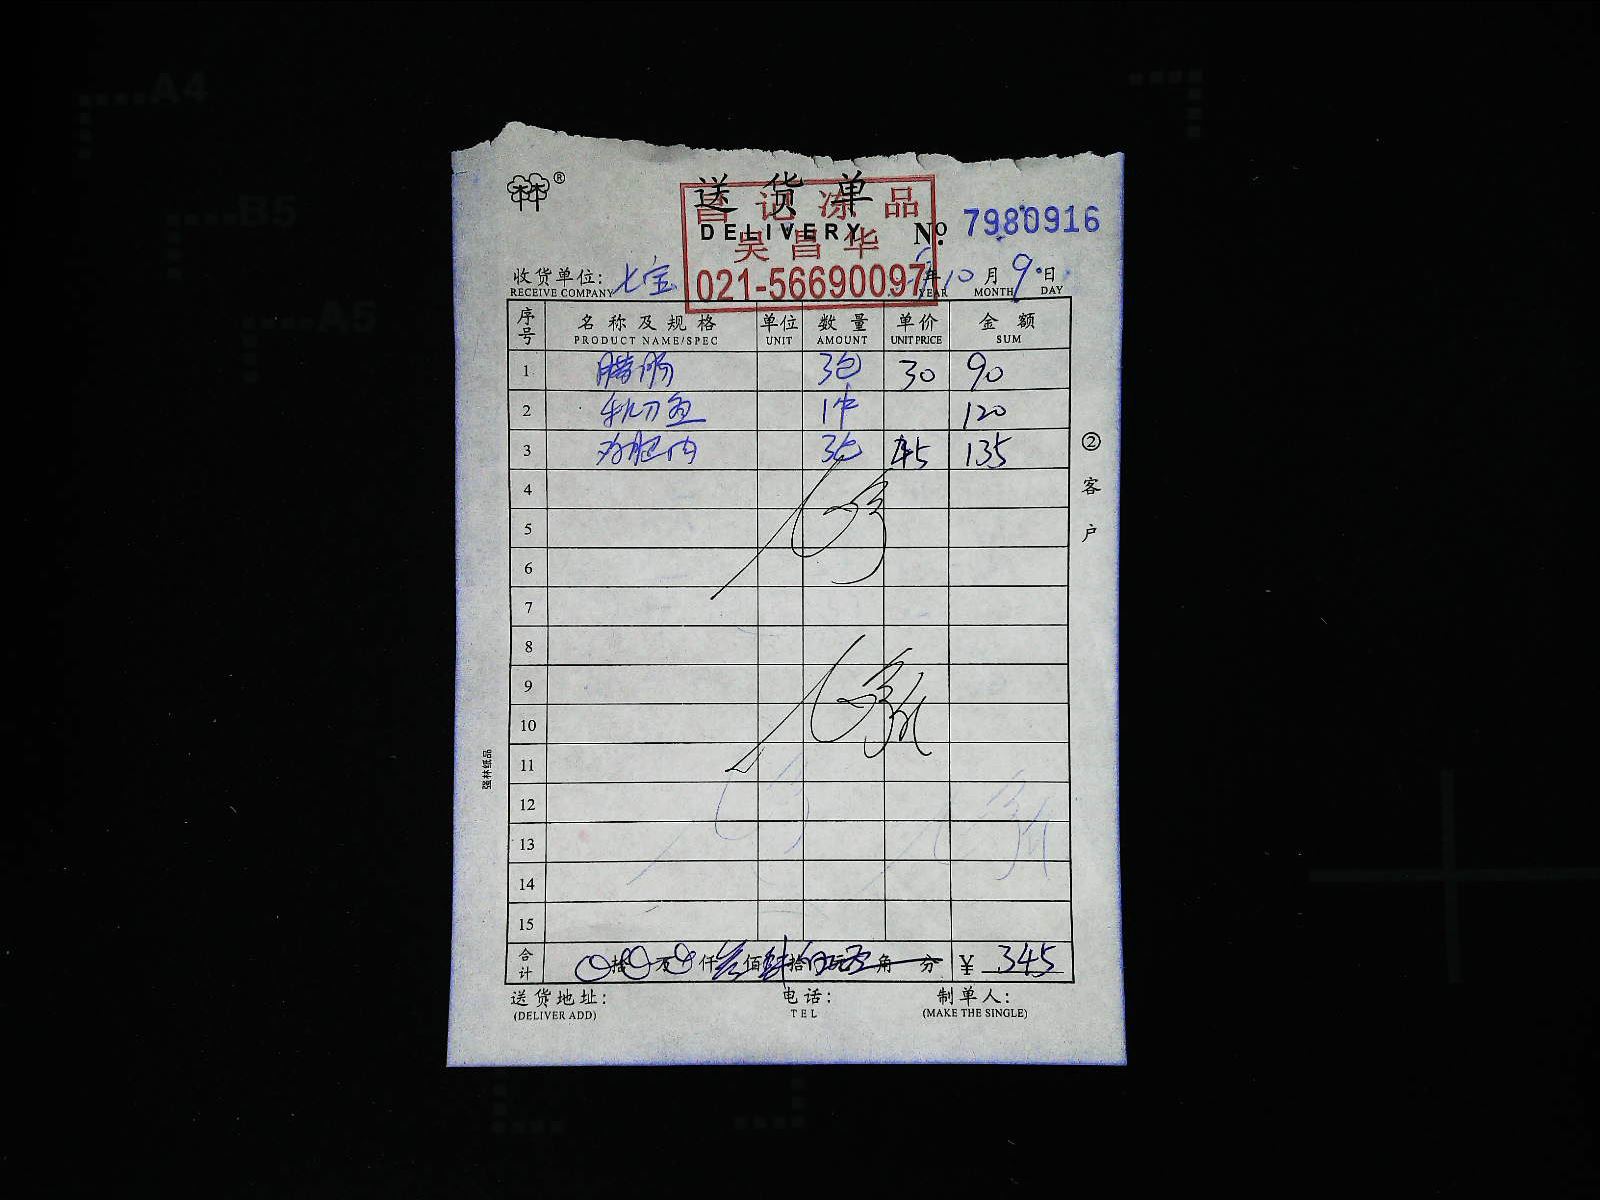 A4
B5
A5
林 ®
送货单
DELIVERY
№ 7980916
昌记冻品
吴昌华
021-56690097
收货单位: 七宝 年 10 月 9 日
RECEIVE COMPANY YEAR MONTH DAY
序号 名称及规格 单位 数量 单价 金额
PRODUCT NAME/SPEC UNIT AMOUNT UNIT PRICE SUM
1 腊肠 3包 30 90
2 1件 120
3 3包 45 135
4
5
6
7
8
9
10
11
12
13
14
15
② 客户
强林纸品
合计 拾 万 仟 叁 佰 肆 拾 元 角 分 ¥ 345
送货地址: 电话: 制单人:
(DELIVER ADD) TEL (MAKE THE SINGLE)